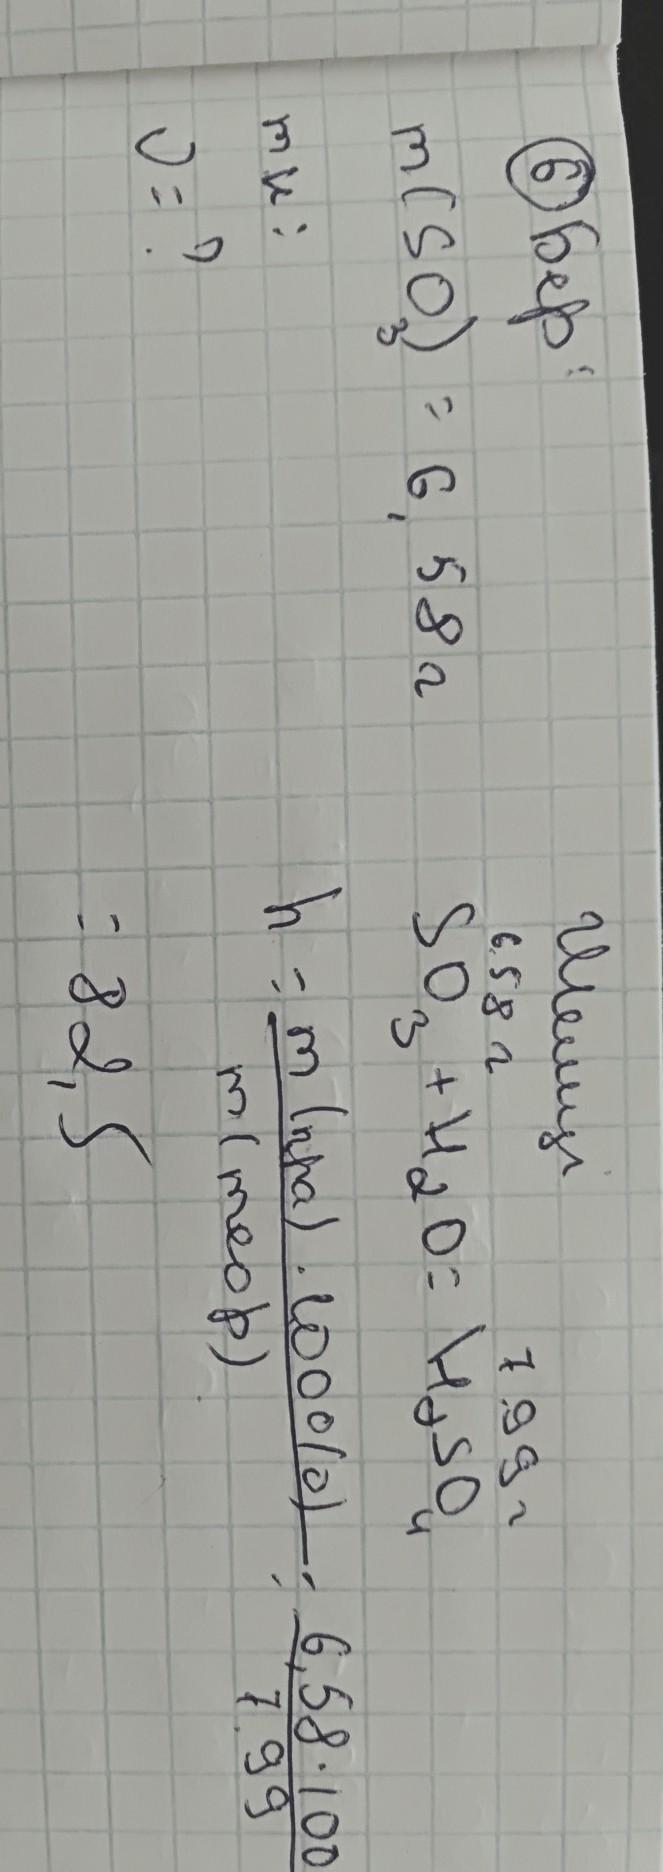 6 Бер:
m(SO3) = 6,58г
тк:
υ = ?
Шешуі
6.58г 7.99г
SO3 + H2O = H2SO4
h = m(пра).100%
m(теор)
= 6,58.100
7.99
= 82,5